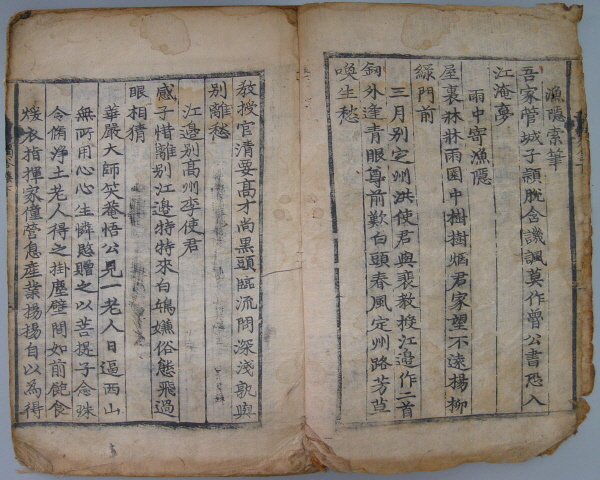 漁隱索筆
吾家管城子穎脫含譏諷莫作曾公書恐入
江淹夢
雨中寄漁隱
屋裏牀牀雨園中樹樹烟君家望不遠楊柳
綠門前
三月別定州洪使君與裴教授江邉作二首
郊外逢青眼尊前歎白頭春風定州路芳草
喚生愁
教授官清要高才尚黑頭臨流問深淺孰與
別離愁
江邉別高州李使君
感子惜離別江邉特特來白鷗嫌俗態飛過
眼相猜
華嚴大師笑菴悟公見一老人日逼西山
無所用心心生憐愍贈之以菩提子念珠
令脩淨土老人得之掛塵壁間如前飽食
煖衣指揮家僮營息産業揚揚自以為得